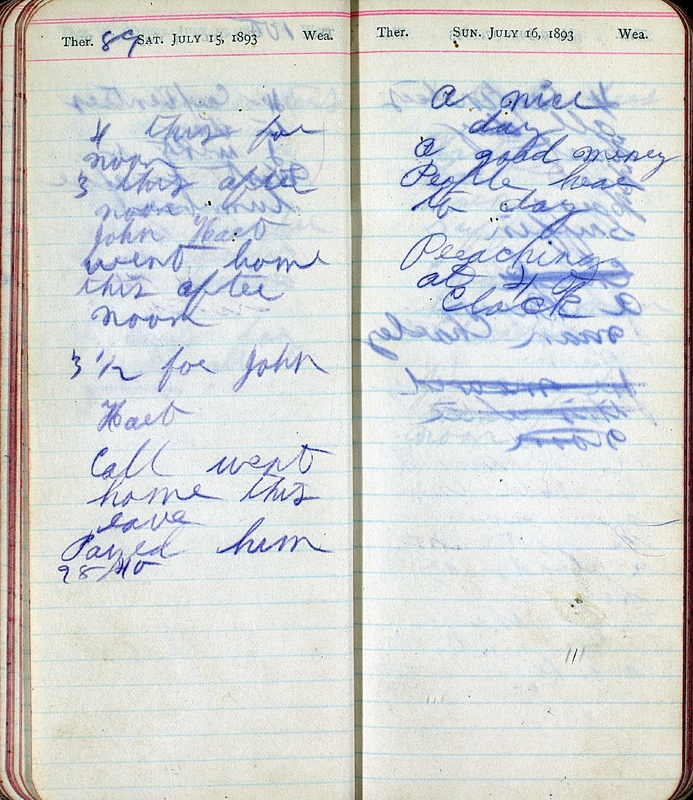 Ther. 89 SAT. JULY 15, 1893 Wea.
4 this for
noon
3 this after
noon
John Hart
went home
this after
noon
3 1/2 for John
Hart
Call went
home this
eave
Payed him
Ther. SUN. JULY 16, 1893 Wea.
A nice
day
a good meney
People hear
to day
Preaching
at 4 O
Clock